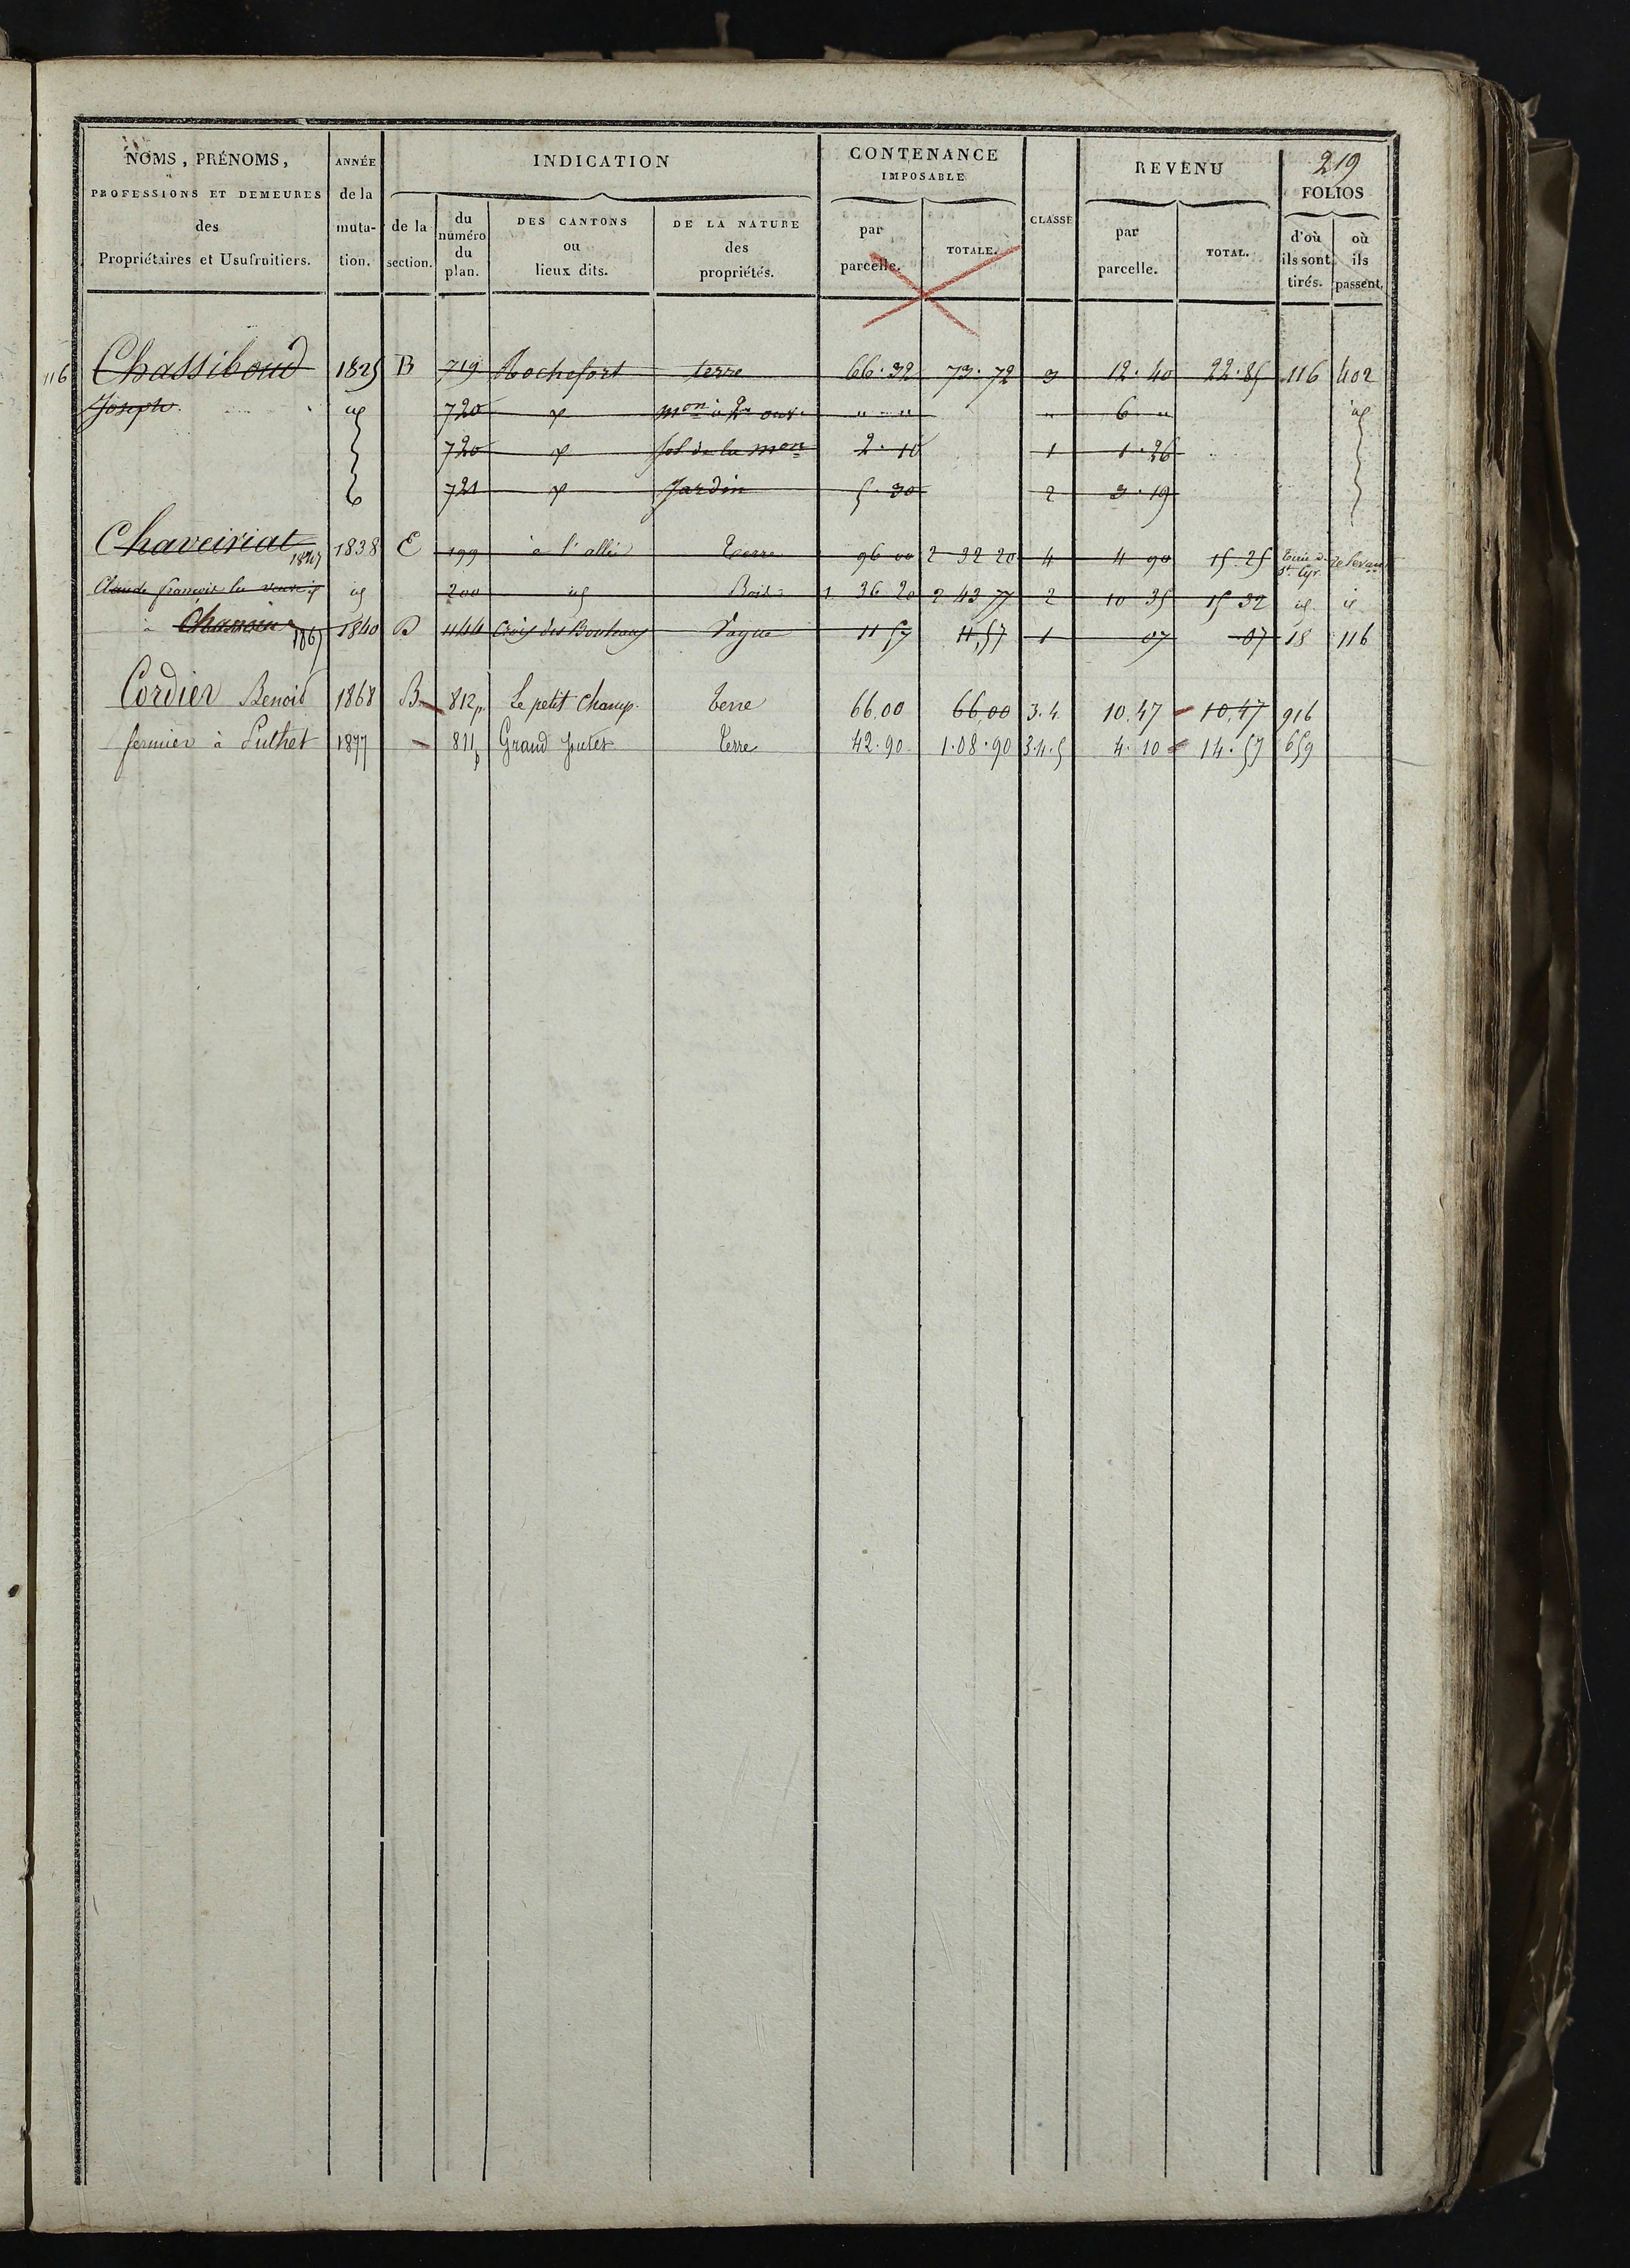 219
NOMS, PRÉNOMS, PROFESSIONS ET DEMEURES des Propriétaires et Usufruitiers.
ANNÉE de la muta-tion.
INDICATION
de la section.
du numéro du plan.
DES CANTONS ou lieux dits.
DE LA NATURE des propriétés.
CONTENANCE IMPOSABLE
par parcelle.
TOTALE.
CLASSE
REVENU
par parcelle.
TOTAL.
FOLIOS
d'où ils sont tirés.
où ils passent.
116 Chassiboud 1825 B 719 Rochefort terre 66.32 73.72 3 12.40 22.85 116 402
Joseph id 720 mon à 2 ouv. " " " 6 " id
720 sol de la mon 2.10 1 1.26
721 Jardin 5.30 2 3.19
Chaveiriat 1847 1838 E 199 à l'allée Terre 96 00 2 32 20 4 4 90 15.25 St. Cyr
Claude françois la veuve id 200 id Bois 1 36 20 2 43 77 2 10 35 15 32 id id
à Chanoin 1865 1840 B 1144 Croix des Vague 11 57 11,57 1 07 07 18 116
Cordier Benoid 1868 B 812p Le petit Champ. Terre 66.00 66,00 3.4. 10.47 10,47 916
fermier à Luthet 1877 811p Grand Terre 42.90 1.08.90 3.4.5 4.10 14.57 659